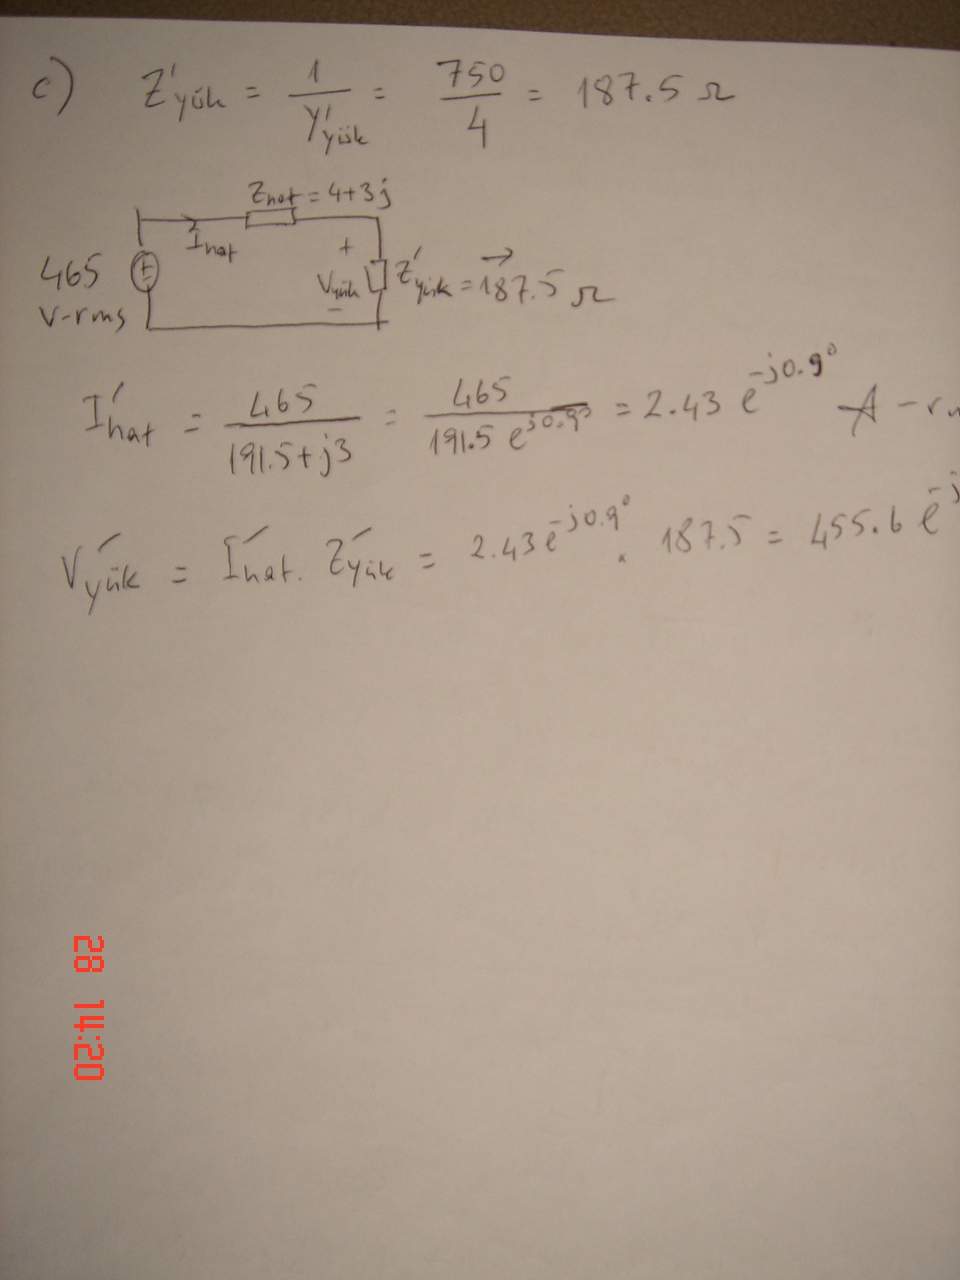 c) Z'yük = 1/Y'yük = 750/4 = 187.5 Ω
Zhat = 4+3j
Ihat
465
V-rms
+
Vyük
-
Z'yük = 187.5 Ω
I'hat = 465/(191.5+j3) = 465/(191.5 e^j0.9°) = 2.43 e^-j0.9° A-r
V'yük = I'hat . Z'yük = 2.43 e^-j0.9° . 187.5 = 455.6 e^-j
28 14:20